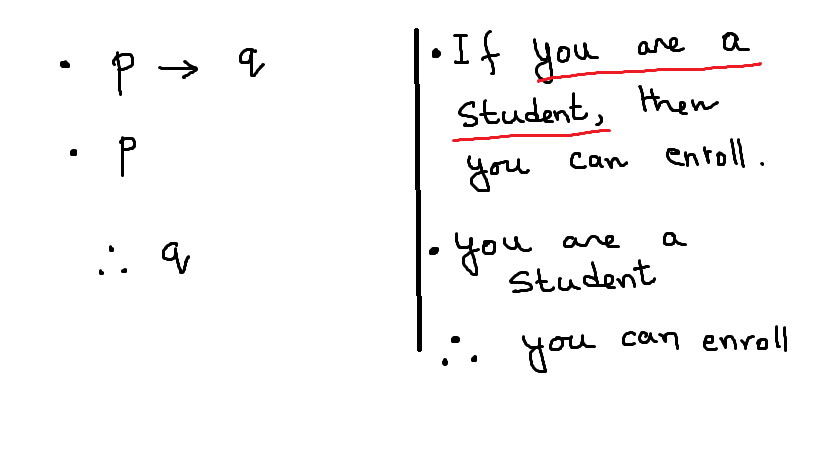 • p → q
• p
∴ q
• If you are a
student, then
you can enroll.
• you are a
student
∴ you can enroll